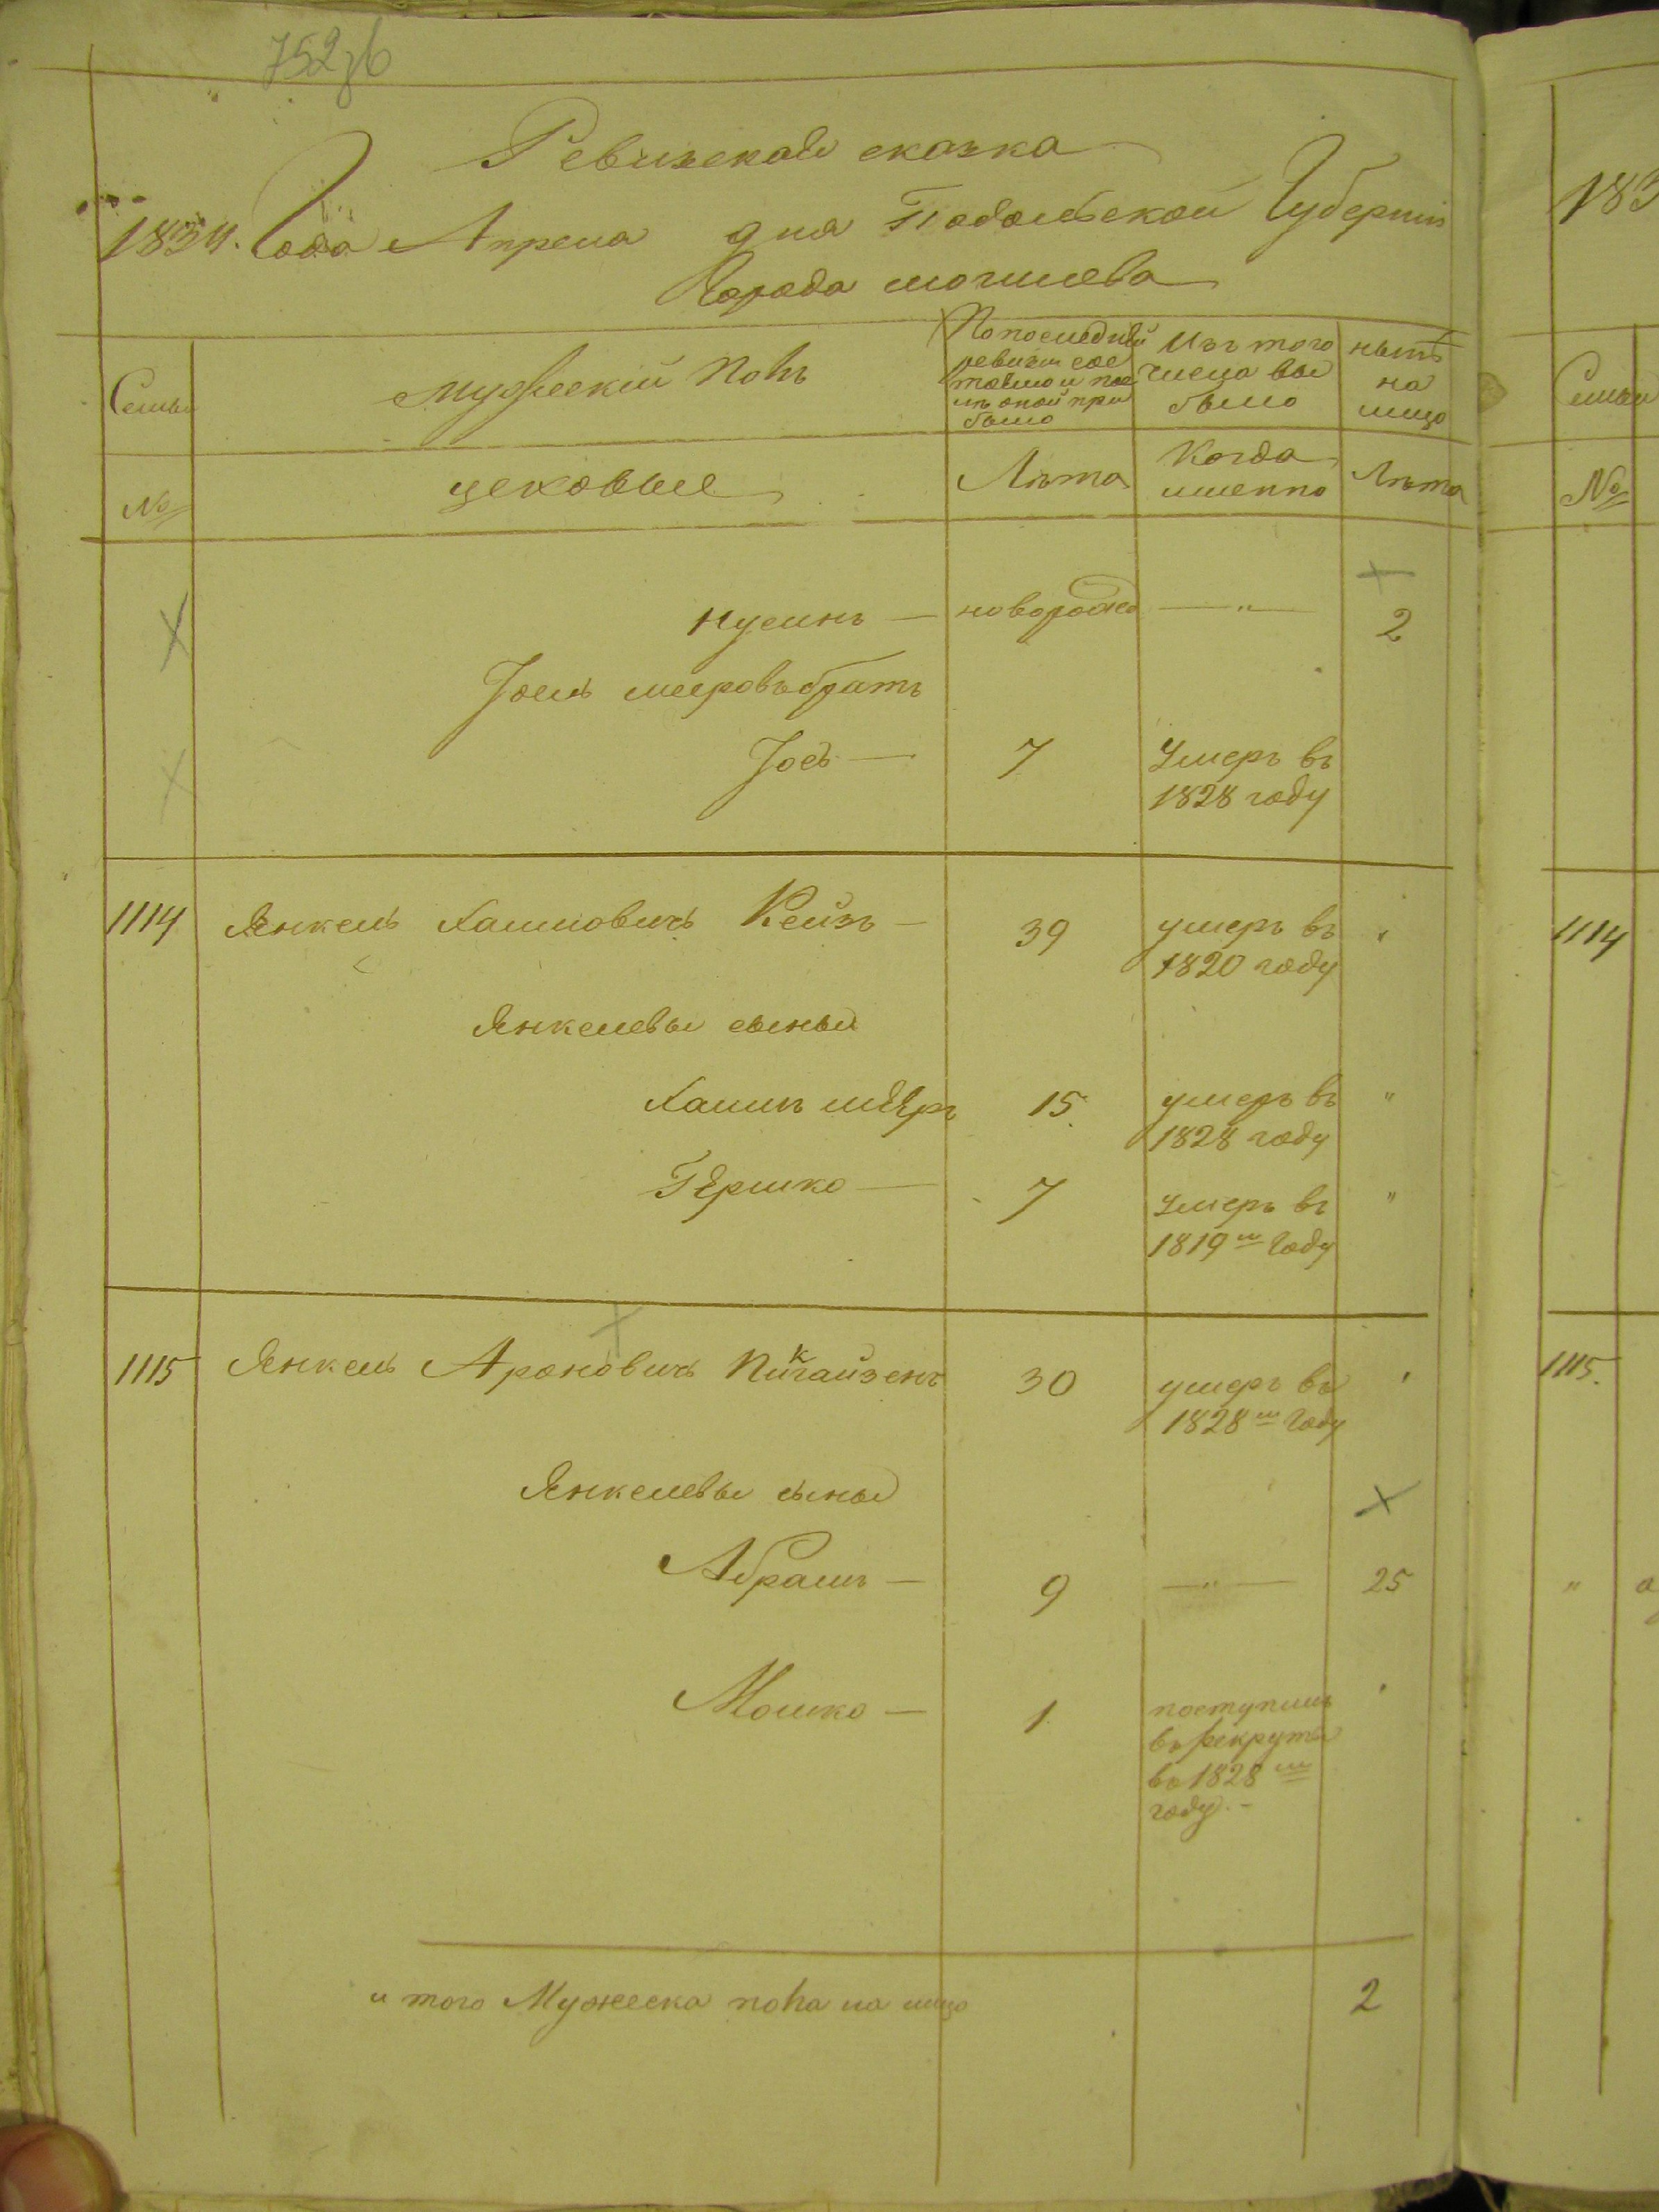 752зв
Ревизская сказка
1834. Года Апреля дня Подольской Губернии
Города могилева
Семьи
мужеский полъ
По последней ревизии состояло и после оной прибыло
Изъ того числа выбыло
ныне на лицо
№
цеховые
Лѣта
Когда именно
Лѣта
нусинъ — новорожд — " — 2
Іосль мееровъ братъ
Іосъ — 7 Умеръ въ
1828 году
1114 Янкель Хаимовичъ Кейзъ — 39 умеръ въ "
1820 году
Янкелевы сыны
Хаимъ меиръ 15. умеръ въ "
1828 году
Гершко — 7 Умеръ въ "
1819м Году
1115 Янкель Ароновичъ Пикгайзенъ 30 умеръ въ "
1828м Году
Янкелевы сыны
Абрамъ — 9 — " — 25
Мошко — 1 поступилъ
въ рекруты
въ 1828м
году. -
и того Мужеска пола на лицо 2
183
Семьи
№
1114
1115.
"